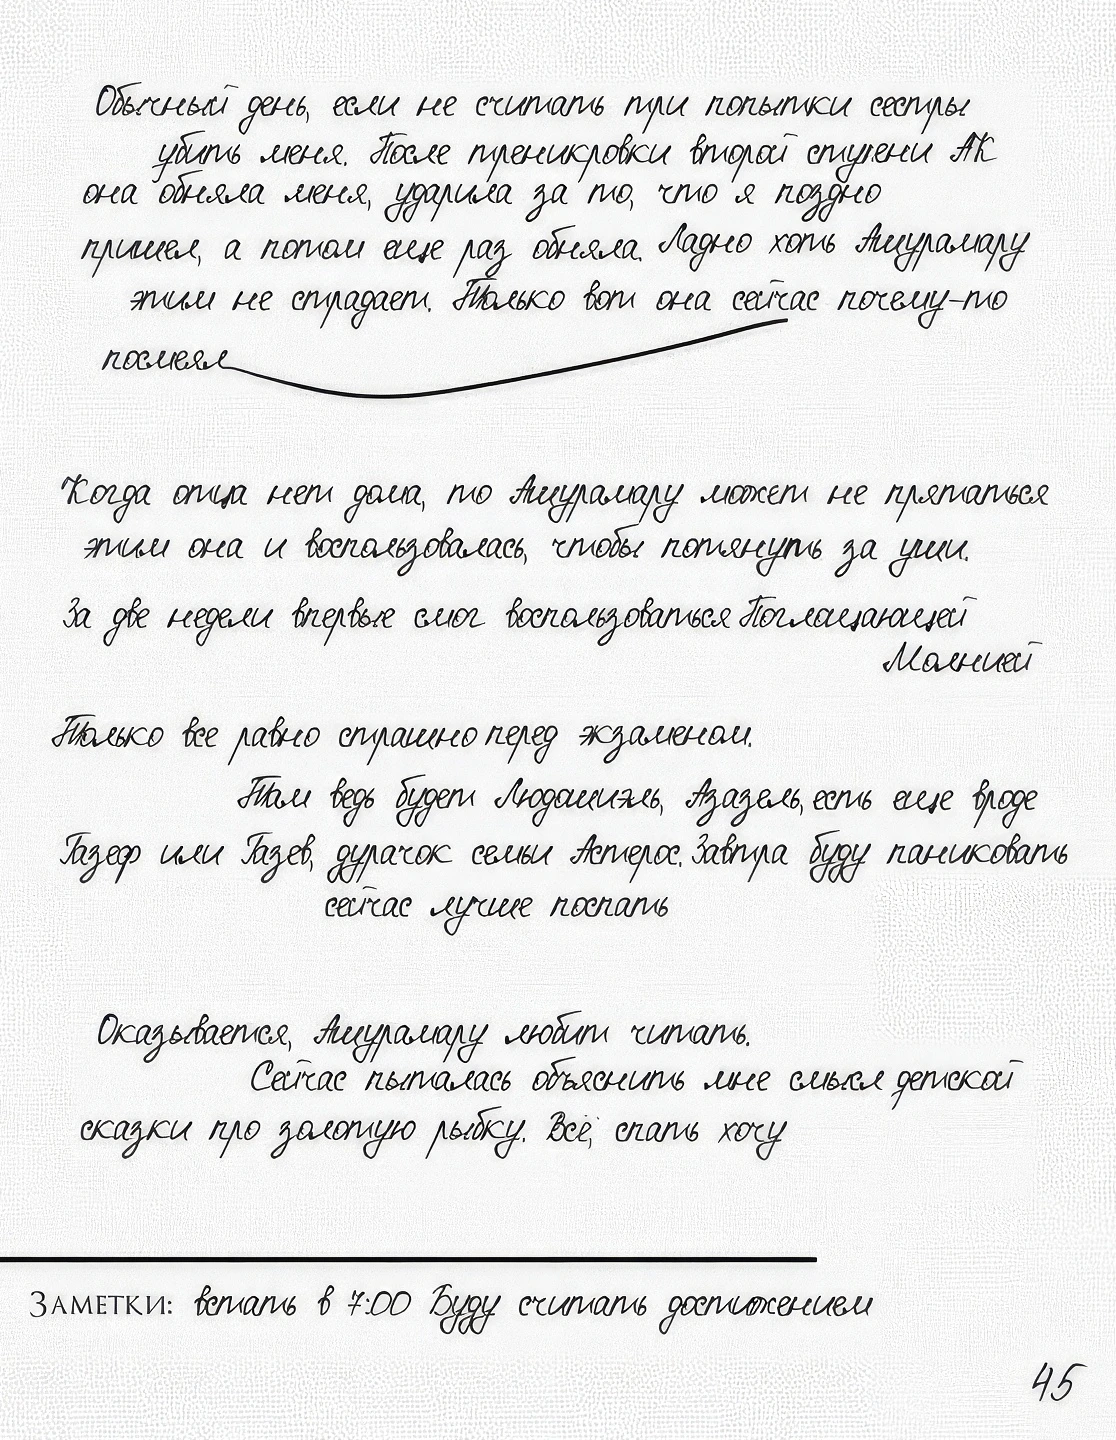 Обычный день, если не считать три попытки сестры
убить меня. После треникровки второй ступени АК
она обняла меня, ударила за то, что я поздно
пришел, а потом еще раз обняла. Ладно хоть Ашурамару
этим не страдает. Только вот она сейчас почему-то
посмеял
Когда отца нет дома, то Ашурамару может не прятаться
этим она и воспользовалась, чтобы потянуть за уши.
За две недели впервые смог воспользоваться Поглощающей
Молнией
Только все равно страшно перед экзаменом.
Там ведь будет Людошиэль, Азазель, есть еще вроде
Газеф или Газев, дурачок семьи Астерос. Завтра буду паниковать
сейчас лучше поспать
Оказывается, Ашурамару любит читать.
Сейчас пыталась объяснить мне смысл детской
сказки про золотую рыбку. Всё, спать хочу
Заметки: встать в 7:00 Буду считать достижением
45